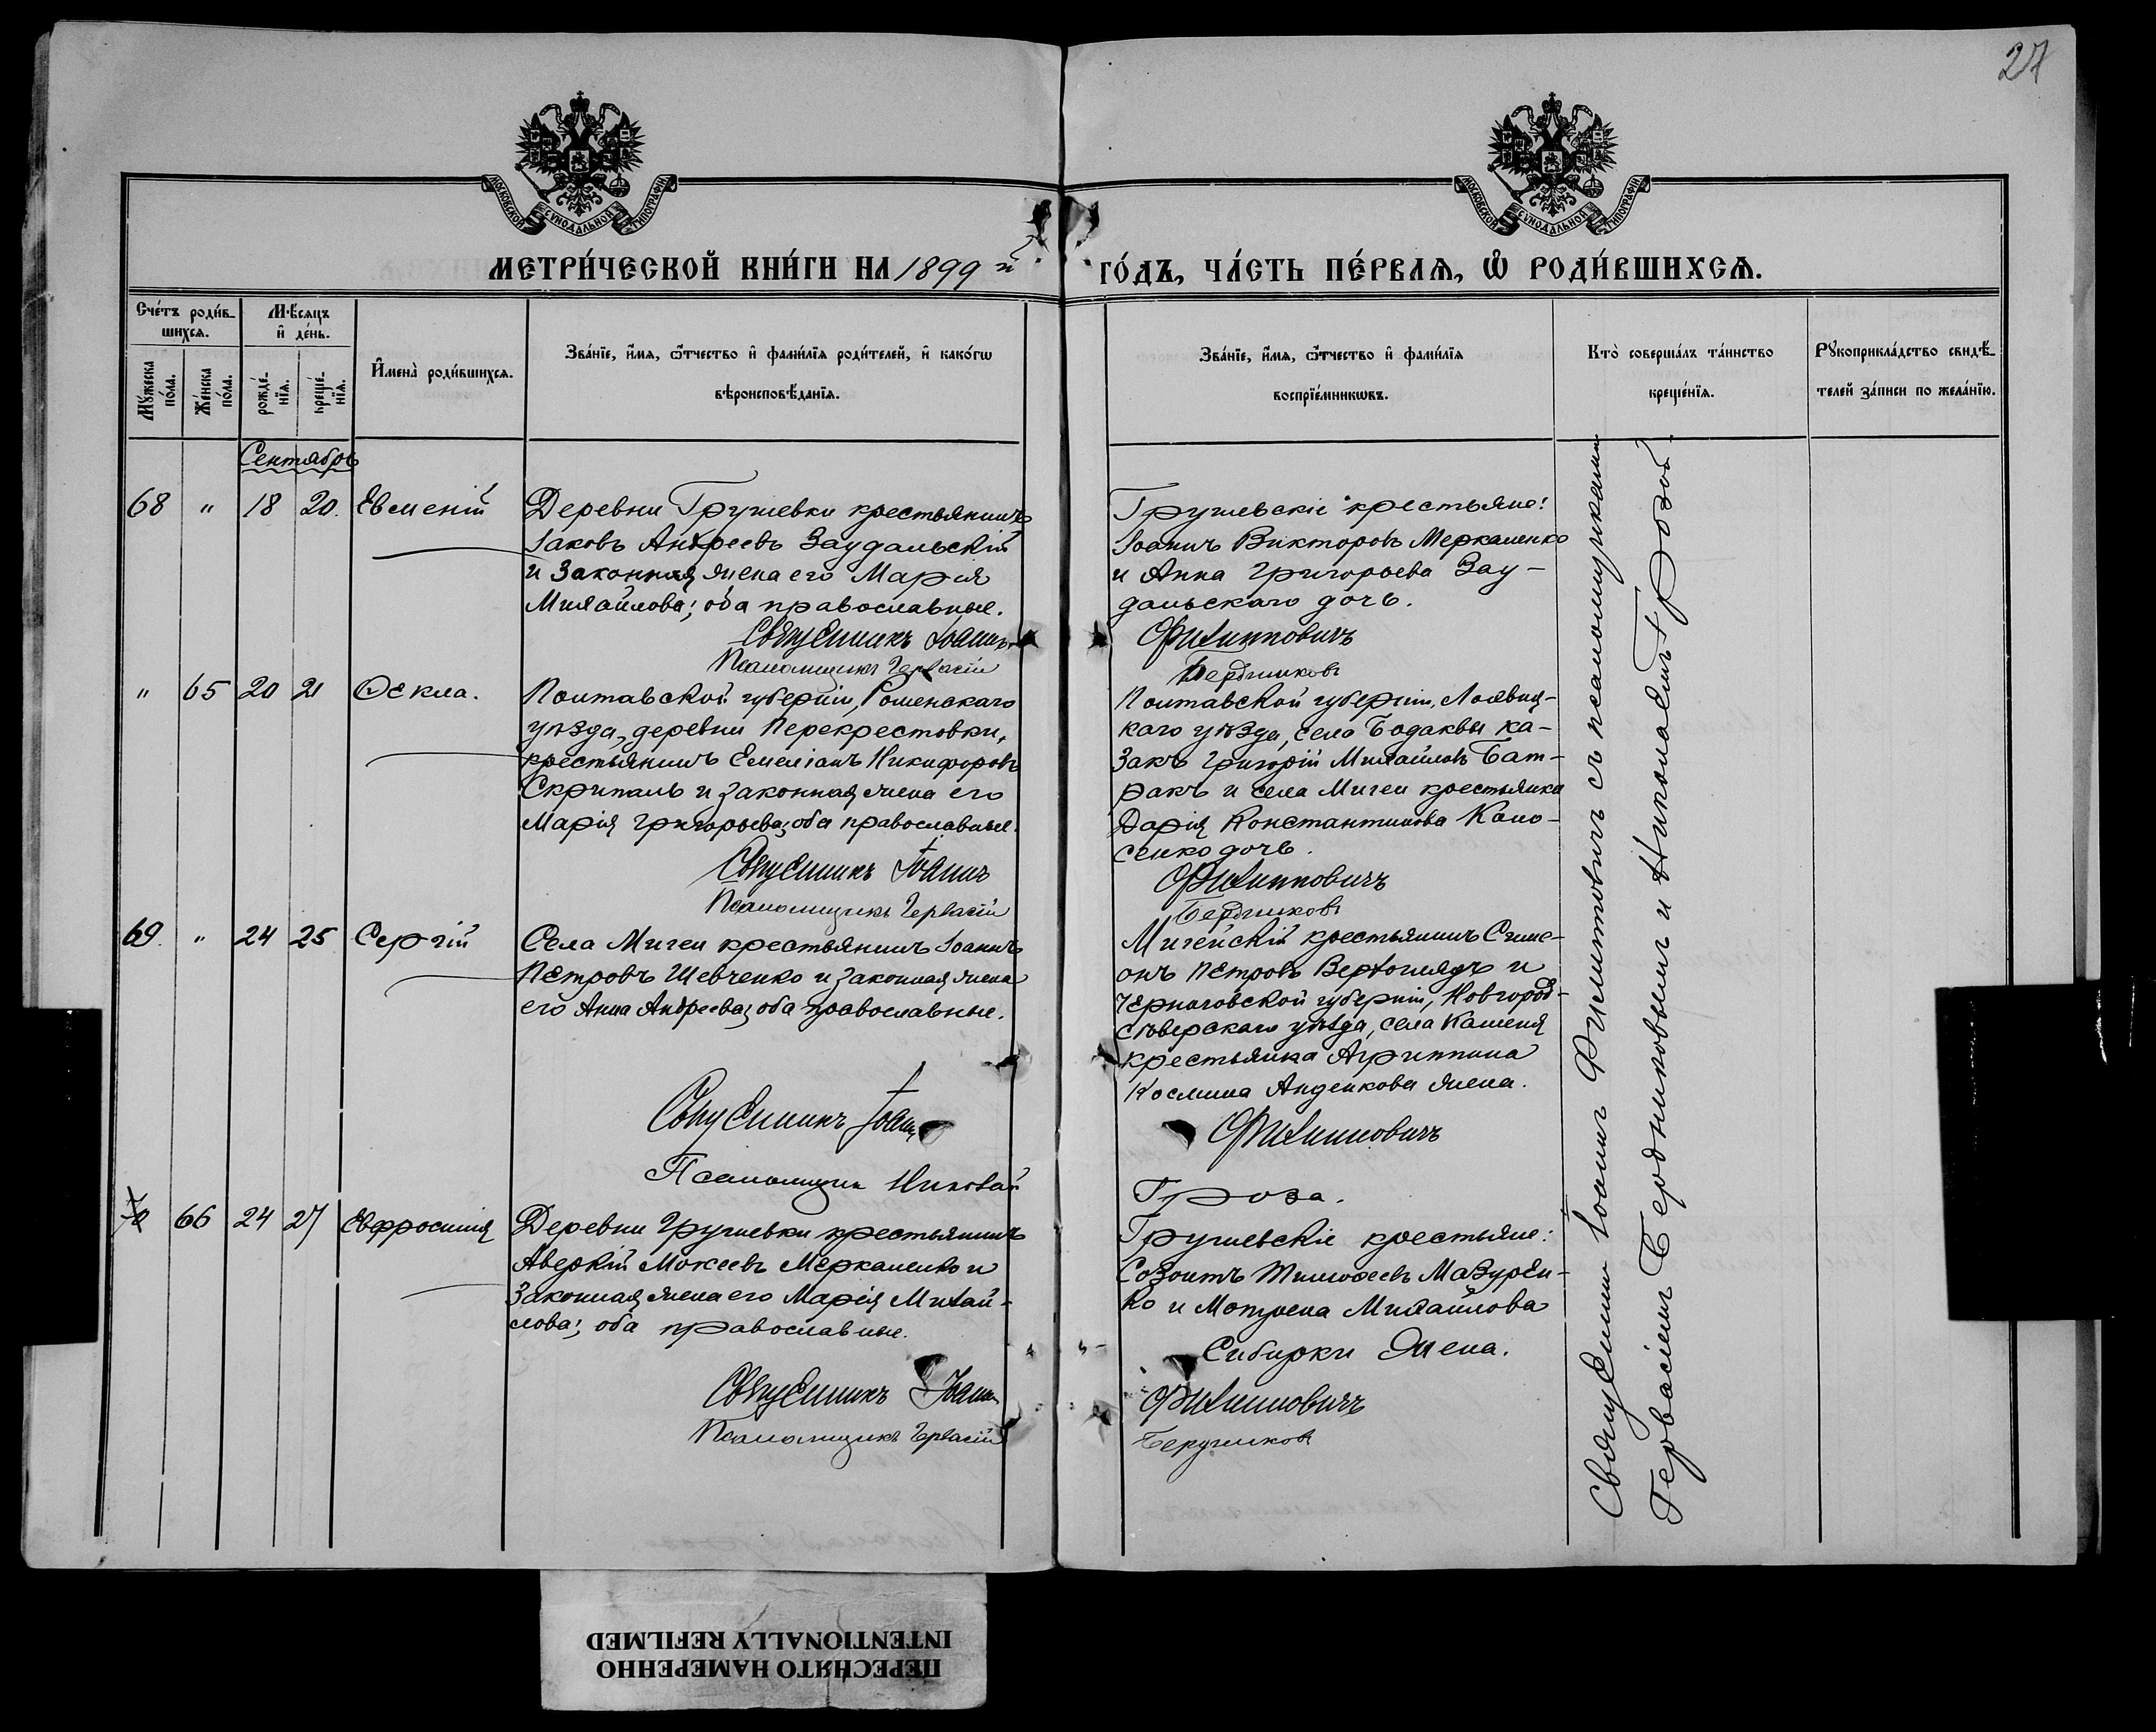 27
МОСКОВСКОЙ СѴНОДАЛЬНОЙ ТИПОГРАФІИ
МОСКОВСКОЙ СѴНОДАЛЬНОЙ ТИПОГРАФІИ
МЕТРИ́ЧЕСКОЙ КНИ́ГИ НА 1899 й ГО́ДЪ, ЧА́СТЬ ПЕ́РВАѦ, Ѽ РОДИ́ВШИХСѦ.
Сче́тъ роди́в-
шихсѧ.
Мꙋ́жеска
по́ла.
Же́нска
по́ла.
Мѣ́сѧцъ
и҆ де́нь.
рожде́-
нїѧ.
креще́-
нїѧ.
И҆мена̀ роди́вшихсѧ.
Зва́нїе, и҆́мѧ, ѻ҆́тчество и҆ фами́лїѧ роди́телей, и҆ како́гѡ
вѣроисповѣ́данїѧ.
Зва́нїе, и҆́мѧ, ѻ҆́тчество и҆ фами́лїѧ
воспрїе́мникѡвъ.
Кто̀ соверша́лъ та́инство
креще́нїѧ.
Рꙋкоприкла́дство свидѣ́-
телей за́писи по жела́нїю.
Сентябрь
68 " 18 20. Евменій
Деревни Грушевки крестьянинъ
Іаковъ Андреевъ Заудальскій
и законная жена его Марія
Михайлова; оба православные.
Священникъ Іоаннъ
Псаломщикъ Гервасій
Грушевскіе крестьяне:
Іоаннъ Викторовъ Меркаленко
и Анна Григорьева Зау-
дальскаго дочь.
Филипповичъ
Бердниковъ
" 65 20 21 Ѳекла.
Полтавской губерніи, Роменскаго
уѣзда, деревни Перекрестовки,
крестьянинъ Емеліанъ Никифоровъ
Скрипаль и законная жена его
Марія Григорьева; оба православные.
Священникъ Іоаннъ
Псаломщикъ Гервасій
Полтавской губерніи, Лохвиц-
каго уѣзда, села Бодаквы ка-
закъ Григорій Михайловъ Бат-
ракъ и села Мигеи крестьянка
Дарія Константинова Коло-
сенко дочь.
Филипповичъ
Бердниковъ
69. " 24 25 Сергій
Села Мигеи крестьянинъ Іоаннъ
Петровъ Шевченко и законная жена
его Анна Андреева; оба православные.
Священникъ Іоаннъ
Псаломщикъ Николай
Мигейскій крестьянинъ Симе-
онъ Петровъ Вертоглядъ и
Черниговской губерніи, Новгород-
сѣверскаго уѣзда, села Каменя
крестьянка Агриппина
Космина Анденкова жена.
Филипповичъ
Гроза.
66 24 27 Евфросинія
Деревни Грушевки крестьянинъ
Аверкій Мокеевъ Меркаленко и
законная жена его Марія Михай-
лова; оба православные.
Священникъ Іоаннъ
Псаломщикъ Гервасій
Грушевскіе крестьяне:
Созонтъ Тимоѳеевъ Мазурен-
ко и Мотрена Михайлова
Сибирки жена.
Филипповичъ
Бердниковъ
Священникъ Іоаннъ Филипповичъ съ псаломщиками
Гервасіемъ Бердниковымъ и Николаемъ Грозой.
ПЕРЕСНЯТО НАМЕРЕННО
INTENTIONALLY REFILMED